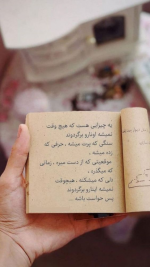 یه چیزایی هست که هیچ وقت
نمیشه اونارو برگردوند
سنگی که پرت میشه ، حرفی که
زده میشه ،
موقعیتی که از دست میره ، زمانی
که میگذره ،
دلی که میشکنه ، هیچوقت
نمیشه اینارو برگردوند
پس حواست باشه .